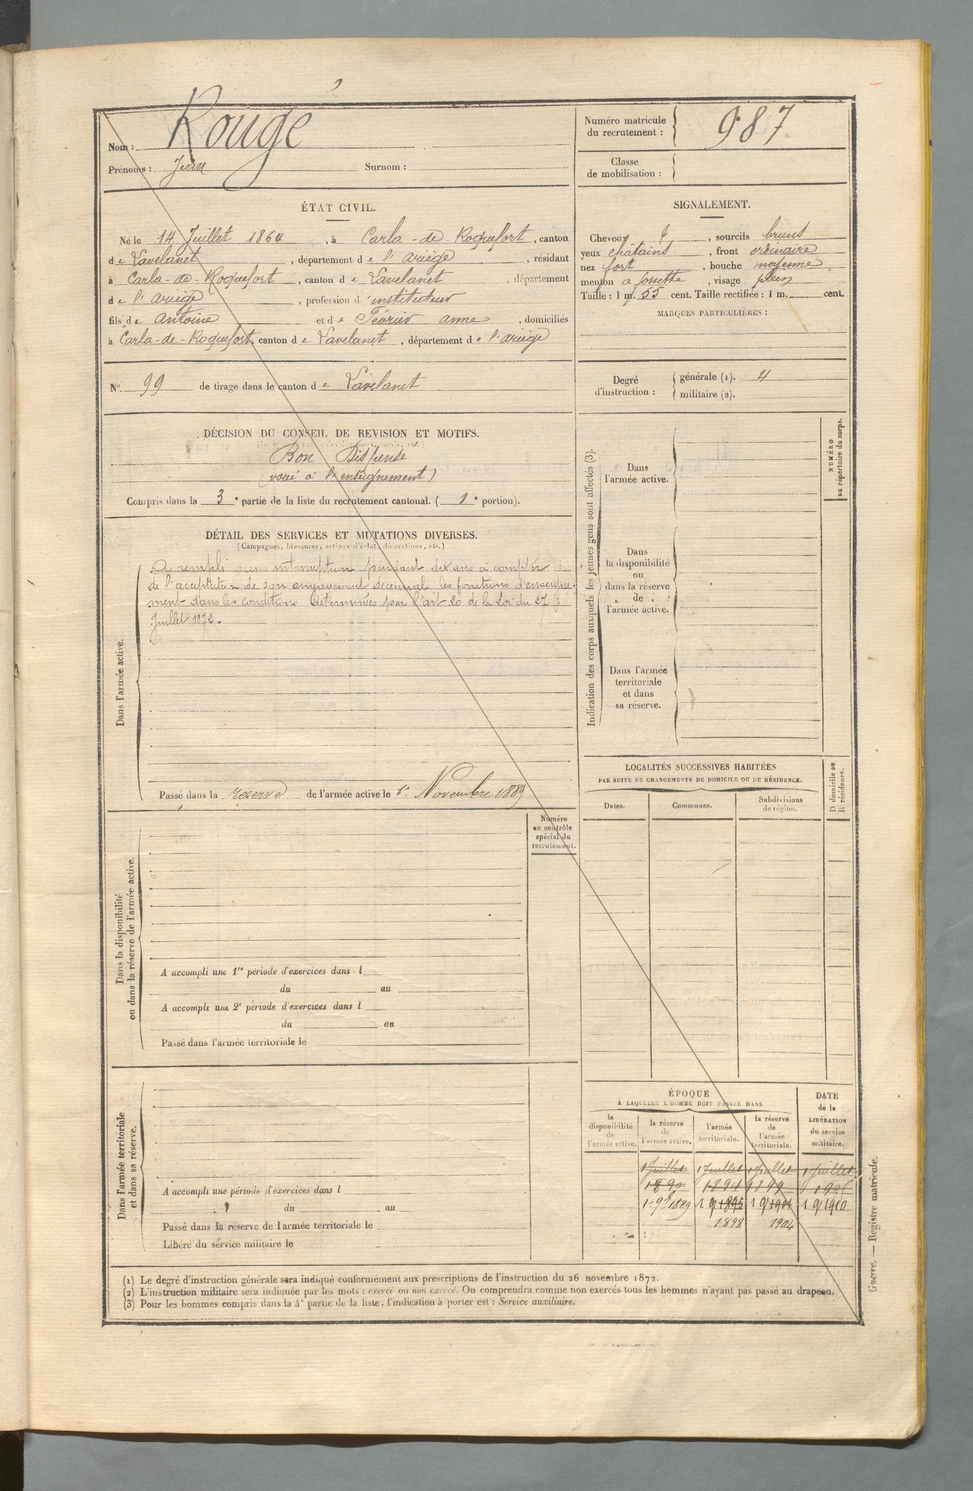 Nom : Rougé
Prénoms : Jean Surnom :
Numéro matricule du recrutement : 987
Classe de mobilisation :
ÉTAT CIVIL.
Né le 14 Juillet 1864, à Carla-de-Roquefort, canton
de Lavelanet, département de l'ariège, résidant
à Carla-de-Roquefort, canton de Lavelanet, département
de l'ariège, profession d'instituteur
fils de Antoine et de Février anne, domiciliés
à Carla-de-Roquefort, canton de Lavelanet, département de l'ariège
N° 99 de tirage dans le canton de Lavelanet
SIGNALEMENT.
Cheveux et, sourcils bruns
yeux chatains, front ordinaire
nez fort, bouche moyenne
menton à fossette, visage plein
Taille : 1 m. 55 cent. Taille rectifiée : 1 m. cent.
MARQUES PARTICULIÈRES :
Degré d'instruction :
générale (1). 4
militaire (2).
DÉCISION DU CONSEIL DE REVISION ET MOTIFS.
Bon Dispensé
(voué à l'enseignement)
Compris dans la 3e partie de la liste du recrutement cantonal. (1e portion).
DÉTAIL DES SERVICES ET MUTATIONS DIVERSES.
(Campagnes, blessures, actions d'éclat, décorations, etc.)
Dans l'armée active.
A rempli sans interruption pendant dix ans à compter
de l'acceptation de son engagement décennal les fonctions d'enseigne-
ment dans les conditions déterminées par l'art 20 de la Loi du 27
Juillet 1872.
Passé dans la réserve de l'armée active le 1er Novembre 1889
Numéro au contrôle spécial du recrutement.
Dans la disponibilité ou dans la réserve de l'armée active.
A accompli une 1re période d'exercices dans l
du au
A accompli une 2e période d'exercices dans l
du au
Passé dans l'armée territoriale le
Dans l'armée territoriale et dans sa réserve.
A accompli une période d'exercices dans l
du au
Passé dans la réserve de l'armée territoriale le
Libéré du service militaire le
Indication des corps auxquels les jeunes gens sont affectés (3).
NUMÉRO au répertoire du corps.
Dans l'armée active.
Dans la disponibilité ou dans la réserve de l'armée active.
Dans l'armée territoriale et dans sa réserve.
LOCALITÉS SUCCESSIVES HABITÉES
PAR SUITE DE CHANGEMENTS DE DOMICILE OU DE RÉSIDENCE.
Dates. Communes. Subdivisions de région. D domicile ou R résidence.
ÉPOQUE
À LAQUELLE L'HOMME DOIT PASSER DANS
DATE de la LIBÉRATION du service militaire.
la disponibilité de l'armée active. la réserve de l'armée active. l'armée territoriale. la réserve de l'armée territoriale.
1 Juillet 1 Juillet 1 Juillet 1 Juillet
1890 1894 1899
1889 1895 1901 1910
1898 1904
(1) Le degré d'instruction générale sera indiqué conformément aux prescriptions de l'instruction du 26 novembre 1872.
(2) L'instruction militaire sera indiquée par les mots : exercé ou non exercé. On comprendra comme non exercés tous les hommes n'ayant pas passé au drapeau.
(3) Pour les hommes compris dans la 4e partie de la liste, l'indication à porter est : Service auxiliaire.
Guerre. — Registre matricule.